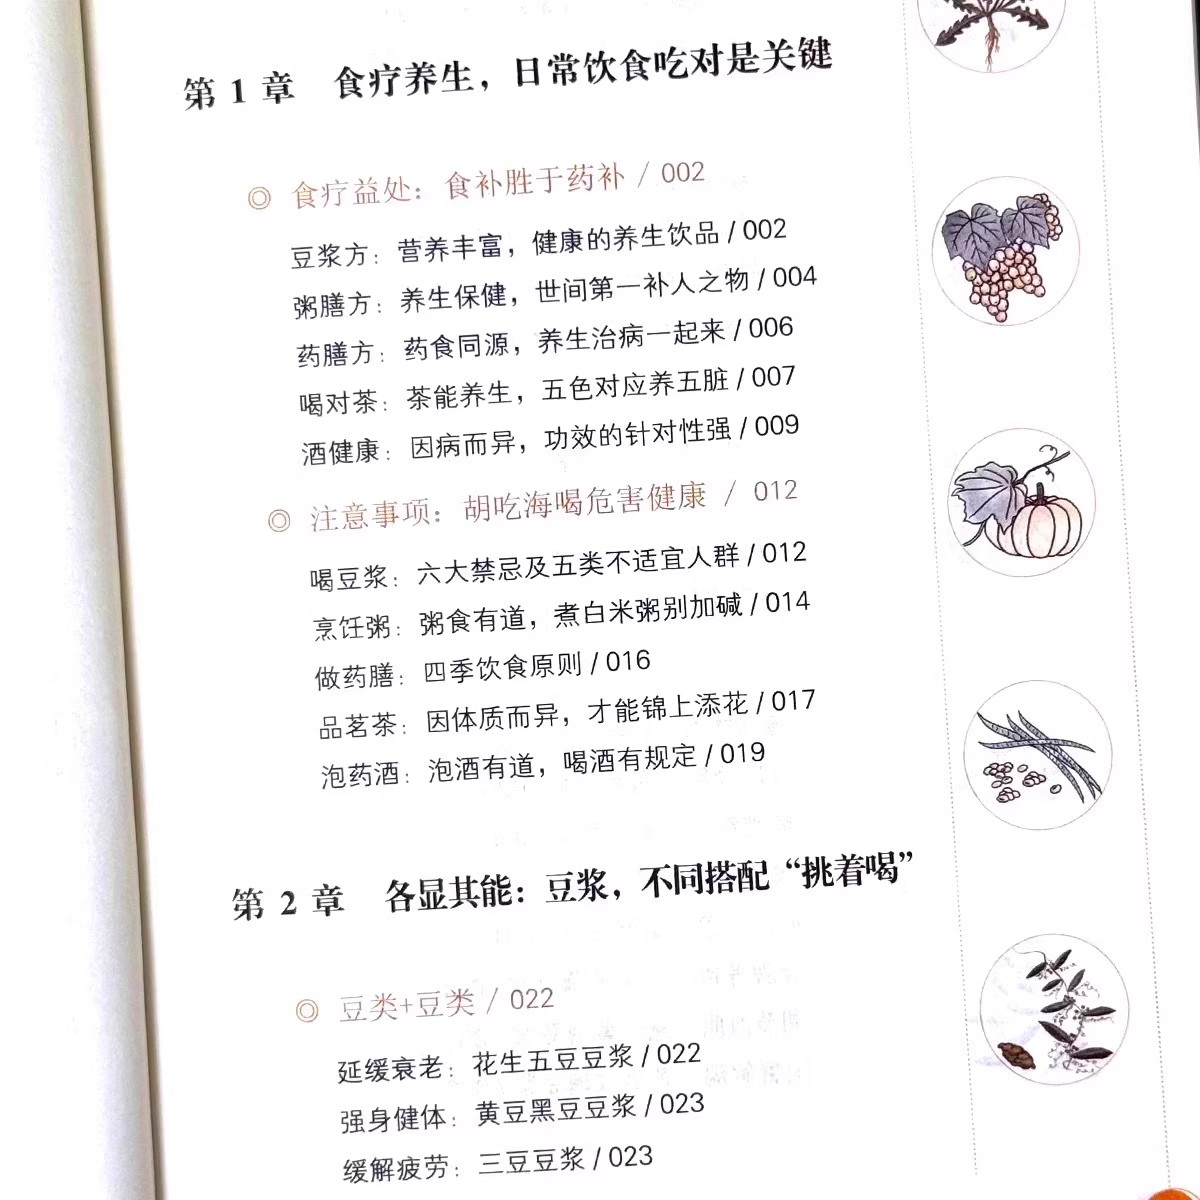 第 1 章 食疗养生，日常饮食吃对是关键
◎ 食疗益处：食补胜于药补 / 002
豆浆方：营养丰富，健康的养生饮品 / 002
粥膳方：养生保健，世间第一补人之物 / 004
药膳方：药食同源，养生治病一起来 / 006
喝对茶：茶能养生，五色对应养五脏 / 007
酒健康：因病而异，功效的针对性强 / 009
◎ 注意事项：胡吃海喝危害健康 / 012
喝豆浆：六大禁忌及五类不适宜人群 / 012
烹饪粥：粥食有道，煮白米粥别加碱 / 014
做药膳：四季饮食原则 / 016
品茗茶：因体质而异，才能锦上添花 / 017
泡药酒：泡酒有道，喝酒有规定 / 019
第 2 章 各显其能：豆浆，不同搭配“挑着喝”
◎ 豆类+豆类 / 022
延缓衰老：花生五豆豆浆 / 022
强身健体：黄豆黑豆豆浆 / 023
缓解疲劳：三豆豆浆 / 023